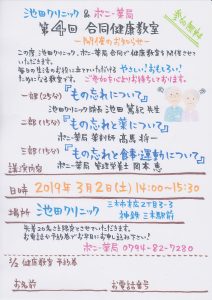 池田クリニック & ポニー薬局
参加無料
第4回 合同健康教室
ー開催のお知らせー
この度、池田クリニック、ポニー薬局合同で健康教室を開催させて
いただきます。
毎日の生活のお役に立てていただける やさしい!おもしろい!
ためになる教室です。 ご参加を心よりお待ちしております。
一部(25分) 『もの忘れについて』
池田クリニック 院長 池田 篤紀 先生
二部(15分) 『もの忘れと薬について』
ポニー薬局 薬剤師 高馬 将一
三部(15分) 『もの忘れと食事・運動について』
ポニー薬局 管理栄養士 岡本 恵
講演内容
日時 2019年3月2日(土) 14:00〜15:30
場所 池田クリニック 三木市末広2丁目3-3
神鉄 三木駅前
先着20名とさせていただきます。
お電話や予約券でお早目にお申し込み下さい!
ポニー薬局 0794-82-7230
3/2 健康教室 予約券
お名前 お電話番号